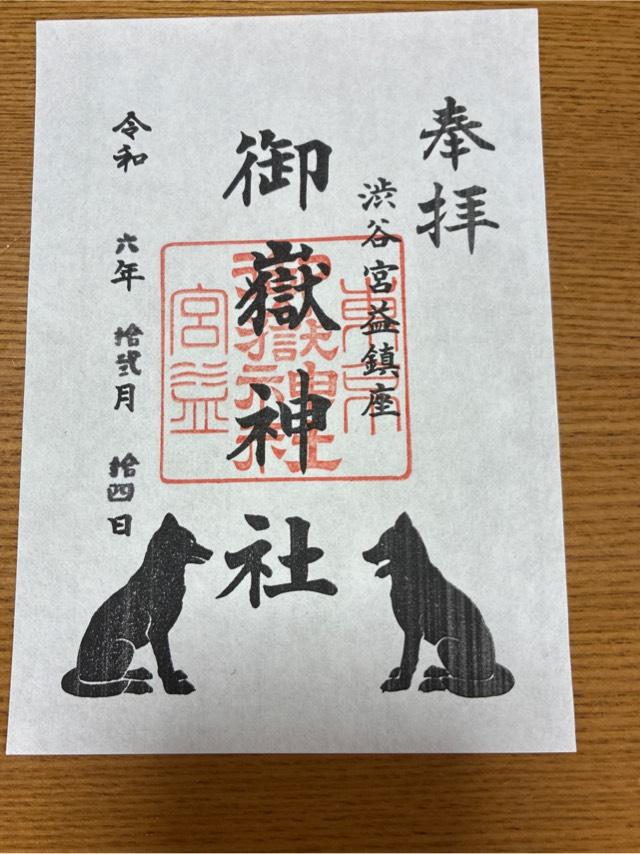 奉拝
渋谷宮益鎮座
御嶽神社
東京
御嶽神社
宮益
令和 六年 拾弐月 拾四日